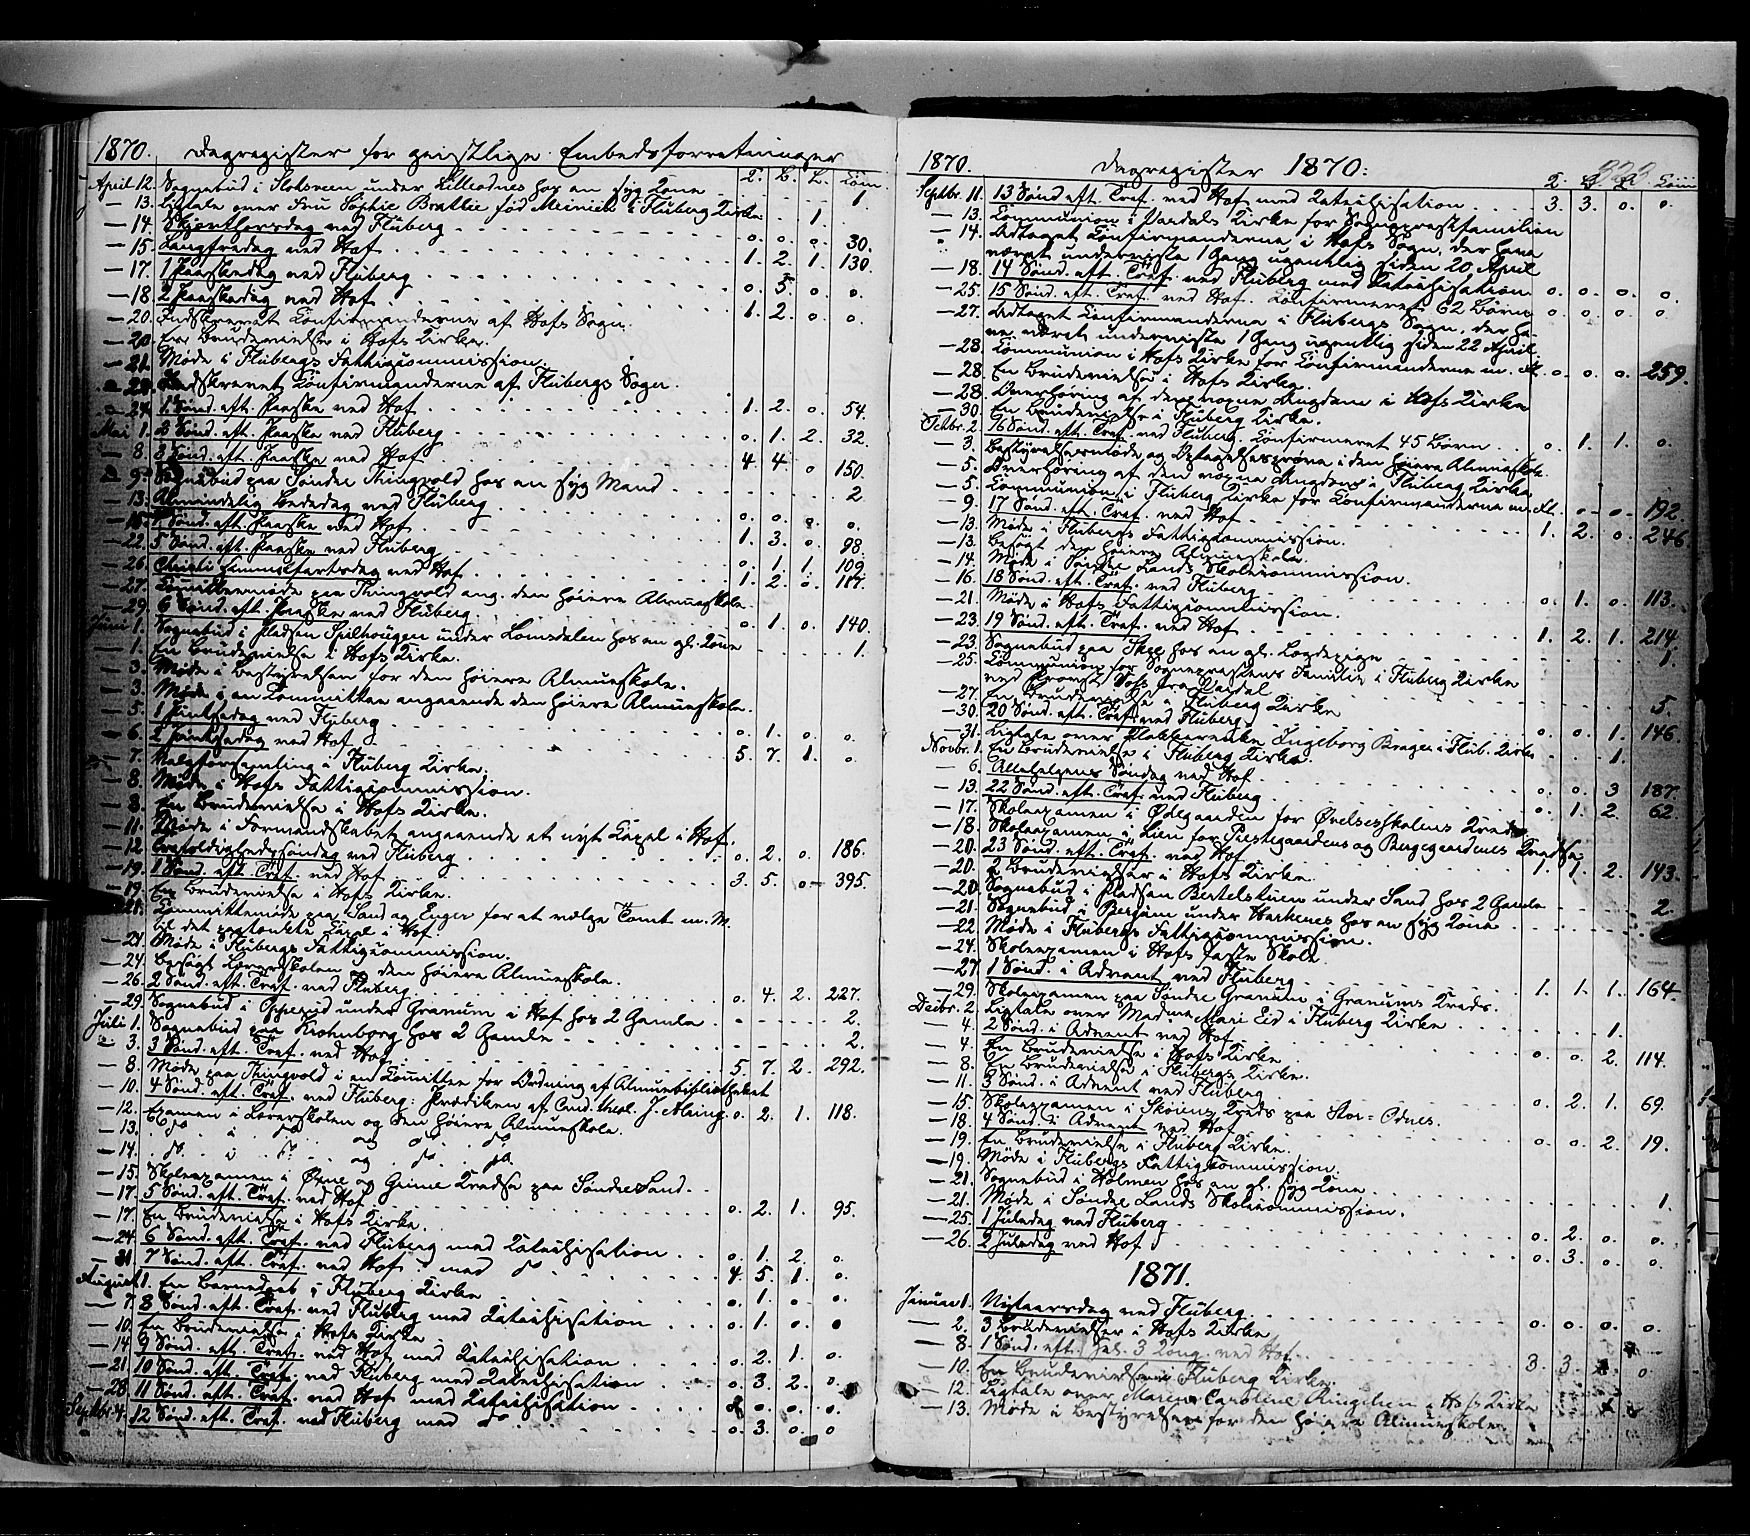 1870. Dagregister for geistlige Embedsforretninger
T. B. L. Com.
April 12. Sognebud i under Lilleodnes hos en syg Kone - 1.
— 13. Ligtale over Fru Sophie Brattlie fød Meinich i Fluberg Kirke - 1.
— 14. Skjærthorsdag ved Fluberg o. o. o. 30.
— 15. Langfredag ved Hof 1. 2. 1. 130.
— 17. 1 Paaskedag ved Fluberg o. 5. o. o.
— 18. 2 Paaskedag ved Hof 1. 2. o. o.
— 20. Indskrevet Confirmanderne af Hofs Sogn.
— 20. En Brudevielse i Hofs Kirke.
— 21. Møde i Flubergs Fattigcommission.
— 22. Indskrevet Confirmanderne af Flubergs Sogn.
— 24. 1 Sønd. eft. Paaske ved Hof 1. 2. o. 54.
Mai 1. 2 Sønd. eft. Paaske ved Fluberg o. 1. 2. 32.
— 8. 3 Sønd. eft. Paaske ved Hof 4. 4. o 150.
— 9. Sognebud paa Søndre Thingvold hos en syg Mand - 2
— 13. Almindelig Bededag ved Fluberg o. o. o. o.
— 15. 4 Sønd. eft. Paaske ved Hof 1. 3. o. 98.
— 22. 5 Sønd. eft. Paaske ved Fluberg o. 1. 1. 109.
— 26. Christi Himmelfartsdag ved Hof 1. 2. o. 117.
— 27. Committeemøde paa Thingvold ang. den høiere Almueskole.
— 29. 6 Sønd. eft. Paaske ved Fluberg o. 1. o. 140.
Juni 1. Sognebud i Pladsen Spilhougen under Lomsdalen hos en gl. Kone - 1.
— 1. En Brudevielse i Hofs Kirke.
— 3. Møde i Bestyrelsen for den høiere Almueskole.
— 3. Møde i en Committee angaaende den høiere Almueskole.
— 5. 1 Pintsedag ved Fluberg o. 1. o. o.
— 6. 2 Pintsedag ved Hof 5. 7. 1. o.
— 7. Valgforsamling i Fluberg Kirke.
— 8. Møde i Hofs Fattigcommission.
— 8. En Brudevielse i Hofs Kirke.
— 11. Møde i Formandskabet angaaende et nyt Capel i Hof.
— 12. Trefoldighedssøndag ved Fluberg o. 2. o. 186.
— 19. 1 Sønd. eft. Tref. ved Hof 3. 5. o — 395.
— 19. En Brudevielse i Hofs Kirke.
— 21. Committeemøde paa Sand og Enger for at vælge Tomt m. M.
til det paatænkte Capel i Hof.
— 21. Møde i Flubergs Fattigcommission.
— 24. Besøgt Lærerskolen og den høiere Almueskole.
— 26. 2 Sønd. eft. Tref. ved Fluberg o. 4. 2. 227.
— 29. Sognebud i Opperud under Granum i Hof hos 2 Gamle - 2.
Juli 1. Sognebud paa Kronborg hos 2 Gamle - 2.
— 3. 3 Sønd. eft. Tref. ved Hof 5. 7. 2. 292.
— 8. Møde paa Thingvold i en Committee for Ordning af Almuebibliotheket
— 10. 4 Sønd. eft. Tref. ved Fluberg: Prædiken af Cand. theol. J. Alving o. 2. 1. 118.
— 12. Examen i Lærerskolen og den høiere Almueskole.
— 13. do i do og do do
— 14. do i do og do do
— 15. Skoleexamen i Øxne og Grime Kredse paa Søndre Land.
— 17. 5 Sønd. eft. Tref. ved Hof o. 2. 1. 95.
— 17. En Brudevielse i Hofs Kirke.
— 24. 6 Sønd. eft. Tref. ved Fluberg med Katechisation o. 1. 2. o.
— 31 7 Sønd. eft. Tref. ved Hof med do 4. 5. 1. o.
August 1. En Barnedaab i Fluberg Kirke o. 1. o. o.
— 7. 8 Sønd. eft. Tref. ved Fluberg med Katechisation o. 1. o. o
— 10. En Brudevielse i Hofs Kirke
— 14. 9 Sønd. eft. Tref. ved Hof med Katechisation o. 2. 1. o.
— 21. 10 Sønd. eft. Tref. ved Fluberg med Katechisation o. 3. 2. o.
— 28. 11 Sønd. eft. Tref. ved Hof med Katechisation o. o. o.
Septbr. 4. 12 Sønd. eft. Tref. ved Fluberg med do o. 3. o. o
1870. Dagregister 1870.
T. Com
Septbr. 11. 13 Sønd. eft. Tref. ved Hof med Katechisation 3. 3. o. o.
— 13. Communion i Vardals Kirke for Sognepræstfamilien
— 14. Antaget Confirmanderne i Hofs Sogn, der have
været underviste 1 Gang ugentlig siden 20 April
— 18. 14 Sønd. eft. Tref. ved Fluberg med Katechisation o. o. o. o.
— 25. 15 Sønd. eft. Tref. ved Hof. Confirmeret 62 Børn o. o. o. o.
— 27. Antaget Confirmanderne i Flubergs Sogn, der ha-
ve været underviste 1 Gang ugentlig siden 22 April.
— 28. Communion i Hofs Kirke for Confirmanderne m. fl. o. o. o. 259.
— 28. En Brudevielse i Hofs Kirke.
— 28. Overhøring af den voxne Ungdom i Hofs Kirke
— 30. En Brudevielse i Fluberg Kirke.
Octbr. 2. 16 Sønd. eft. Tref. ved Fluberg. Confirmeret 45 Børn o. 1. 1. o.
— 3. Bestyrelsesmøde og Optagelsesprøve i den høiere Almueskole.
— 5. Overhøring af den voxne Ungdom i Fluberg Kirke
— 5. Communion i Fluberg Kirke for Confirmanderne m. fl. o - o - 192.
— 9. 17 Sønd. eft. Tref. ved Hof 1. 2. o. 246
— 13. Møde i Flubergs Fattigcommission.
— 13. Besøgt den høiere Almueskole.
— 14. Møde i Søndre Lands Skolecommission.
— 16. 18 Sønd. eft. Tref. ved Fluberg o. 1. o. 113.
— 21. Møde i Hofs Fattigcommission.
— 23. 19 Sønd. eft. Tref. ved Hof 1. 2. 1. 214
— 23. Sognebud paa hos en gl. Lægdepige - 1.
— 25. Communion for Sognepræstens Familie i Fluberg Kirke
ved Provst fra Vardal - 5.
— 27. En Brudevielse i Fluberg Kirke
— 30. 20 Sønd. eft. Tref. ved Fluberg o. o. 1. 146.
— 31. Ligtale over Klokkerenke Ingeborg Brager i Flub. Kirke - 1.
Novbr. 1. En Brudevielse i Fluberg Kirke.
— 6. Allehelgens Søndag ved Hof o. o. 3 187.
— 13. 22 Sønd. eft. Tref. ved Fluberg o. 1. 2. 62
— 17. Skoleexamen i Ødegaarden for Øvelsesskolens Kreds
— 18. Skoleexamen i Lien for Præstegaardens og Bergegaardenes Kredse
— 20. 23 Sønd. eft. Tref. ved Hof 1. 1. 2. 143.
— 20. 2 Brudevielser i Hofs Kirke.
— 20. Sognebud i Pladsen Bertelstuen under Sand hos 2 Gamle - 2.
— 21. Sognebud i Bergum under hos en syg Kone
— 22. Møde i Flubergs Fattigcommission.
— 24. Skoleexamen i Hofs faste Skole.
— 27. 1 Sønd. i Advent ved Fluberg 1. 1. 1. 164.
— 29. Skoleexamen paa Søndre Granum i Granums Kreds.
Decbr. 2. Ligtale over Madme Mari Eid i Fluberg Kirke - 1.
— 4. 2 Sønd. i Advent ved Hof o. o. 2. 114.
— 4. En Brudevielse i Hofs Kirke
— 8. En Brudevielse i Flubergs Kirke.
— 11. 3 Sønd. i Advent ved Fluberg o. 2. 1. 69.
— 15. Skoleexamen i Skøiens Kreds paa Stor-Odnes.
— 18. 4 Sønd. i Advent ved Hof o. o. 2. 19.
— 19. En Brudevielse i Fluberg Kirke.
— 19. Møde i Flubergs Fattigcommission.
— 21. Sognebud i Holmen hos en gl. syg Kone - 1.
— 21. Møde i Søndre Lands Skolecommission.
— 25. 1 Juledag ved Fluberg o. 2. o. o.
— 26. 2 Juledag ved Hof o. 3. o. o.
1871.
Januar 1. Nytaarsdag ved Fluberg o. o. o. o.
— 2. 3 Brudevielser i Hofs Kirke
— 8. 1 Sønd. eft. Hel. 3 Kong. ved Hof 3. 3. o
— 10. En Brudevielse i Fluberg Kirke.
— 12. Ligtale over Maren Caroline Ringelien i Hofs Kirke
— 13. Møde i Bestyrelsen for den høiere Almueskole